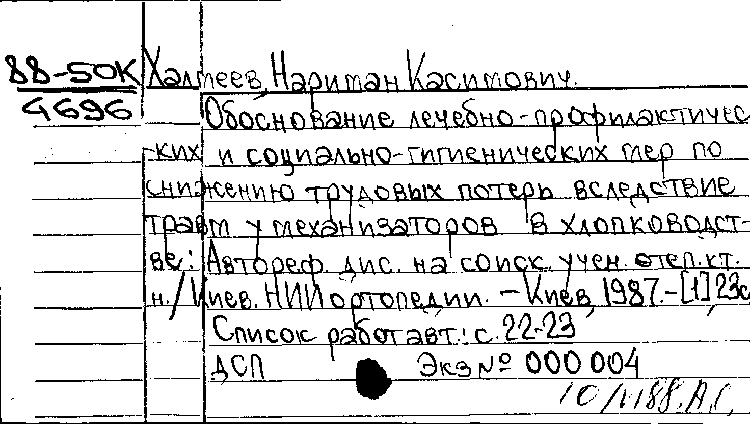 88-50К Халмеев, Нариман Касимович.
4696 Обоснование лечебно-профилактичес
-ких и социально-гигиенических мер по
снижению трудовых потерь вследствие
травм у механизаторов в хлопководст-
ве: Автореф. дис. на соиск. учен. степ. кт.
н./ Киев. НИИ ортопедии. - Киев, 1987.-[1] 23с
Список работ авт.: с. 22-23
ДСП Экз № 000 004
88. А.С.